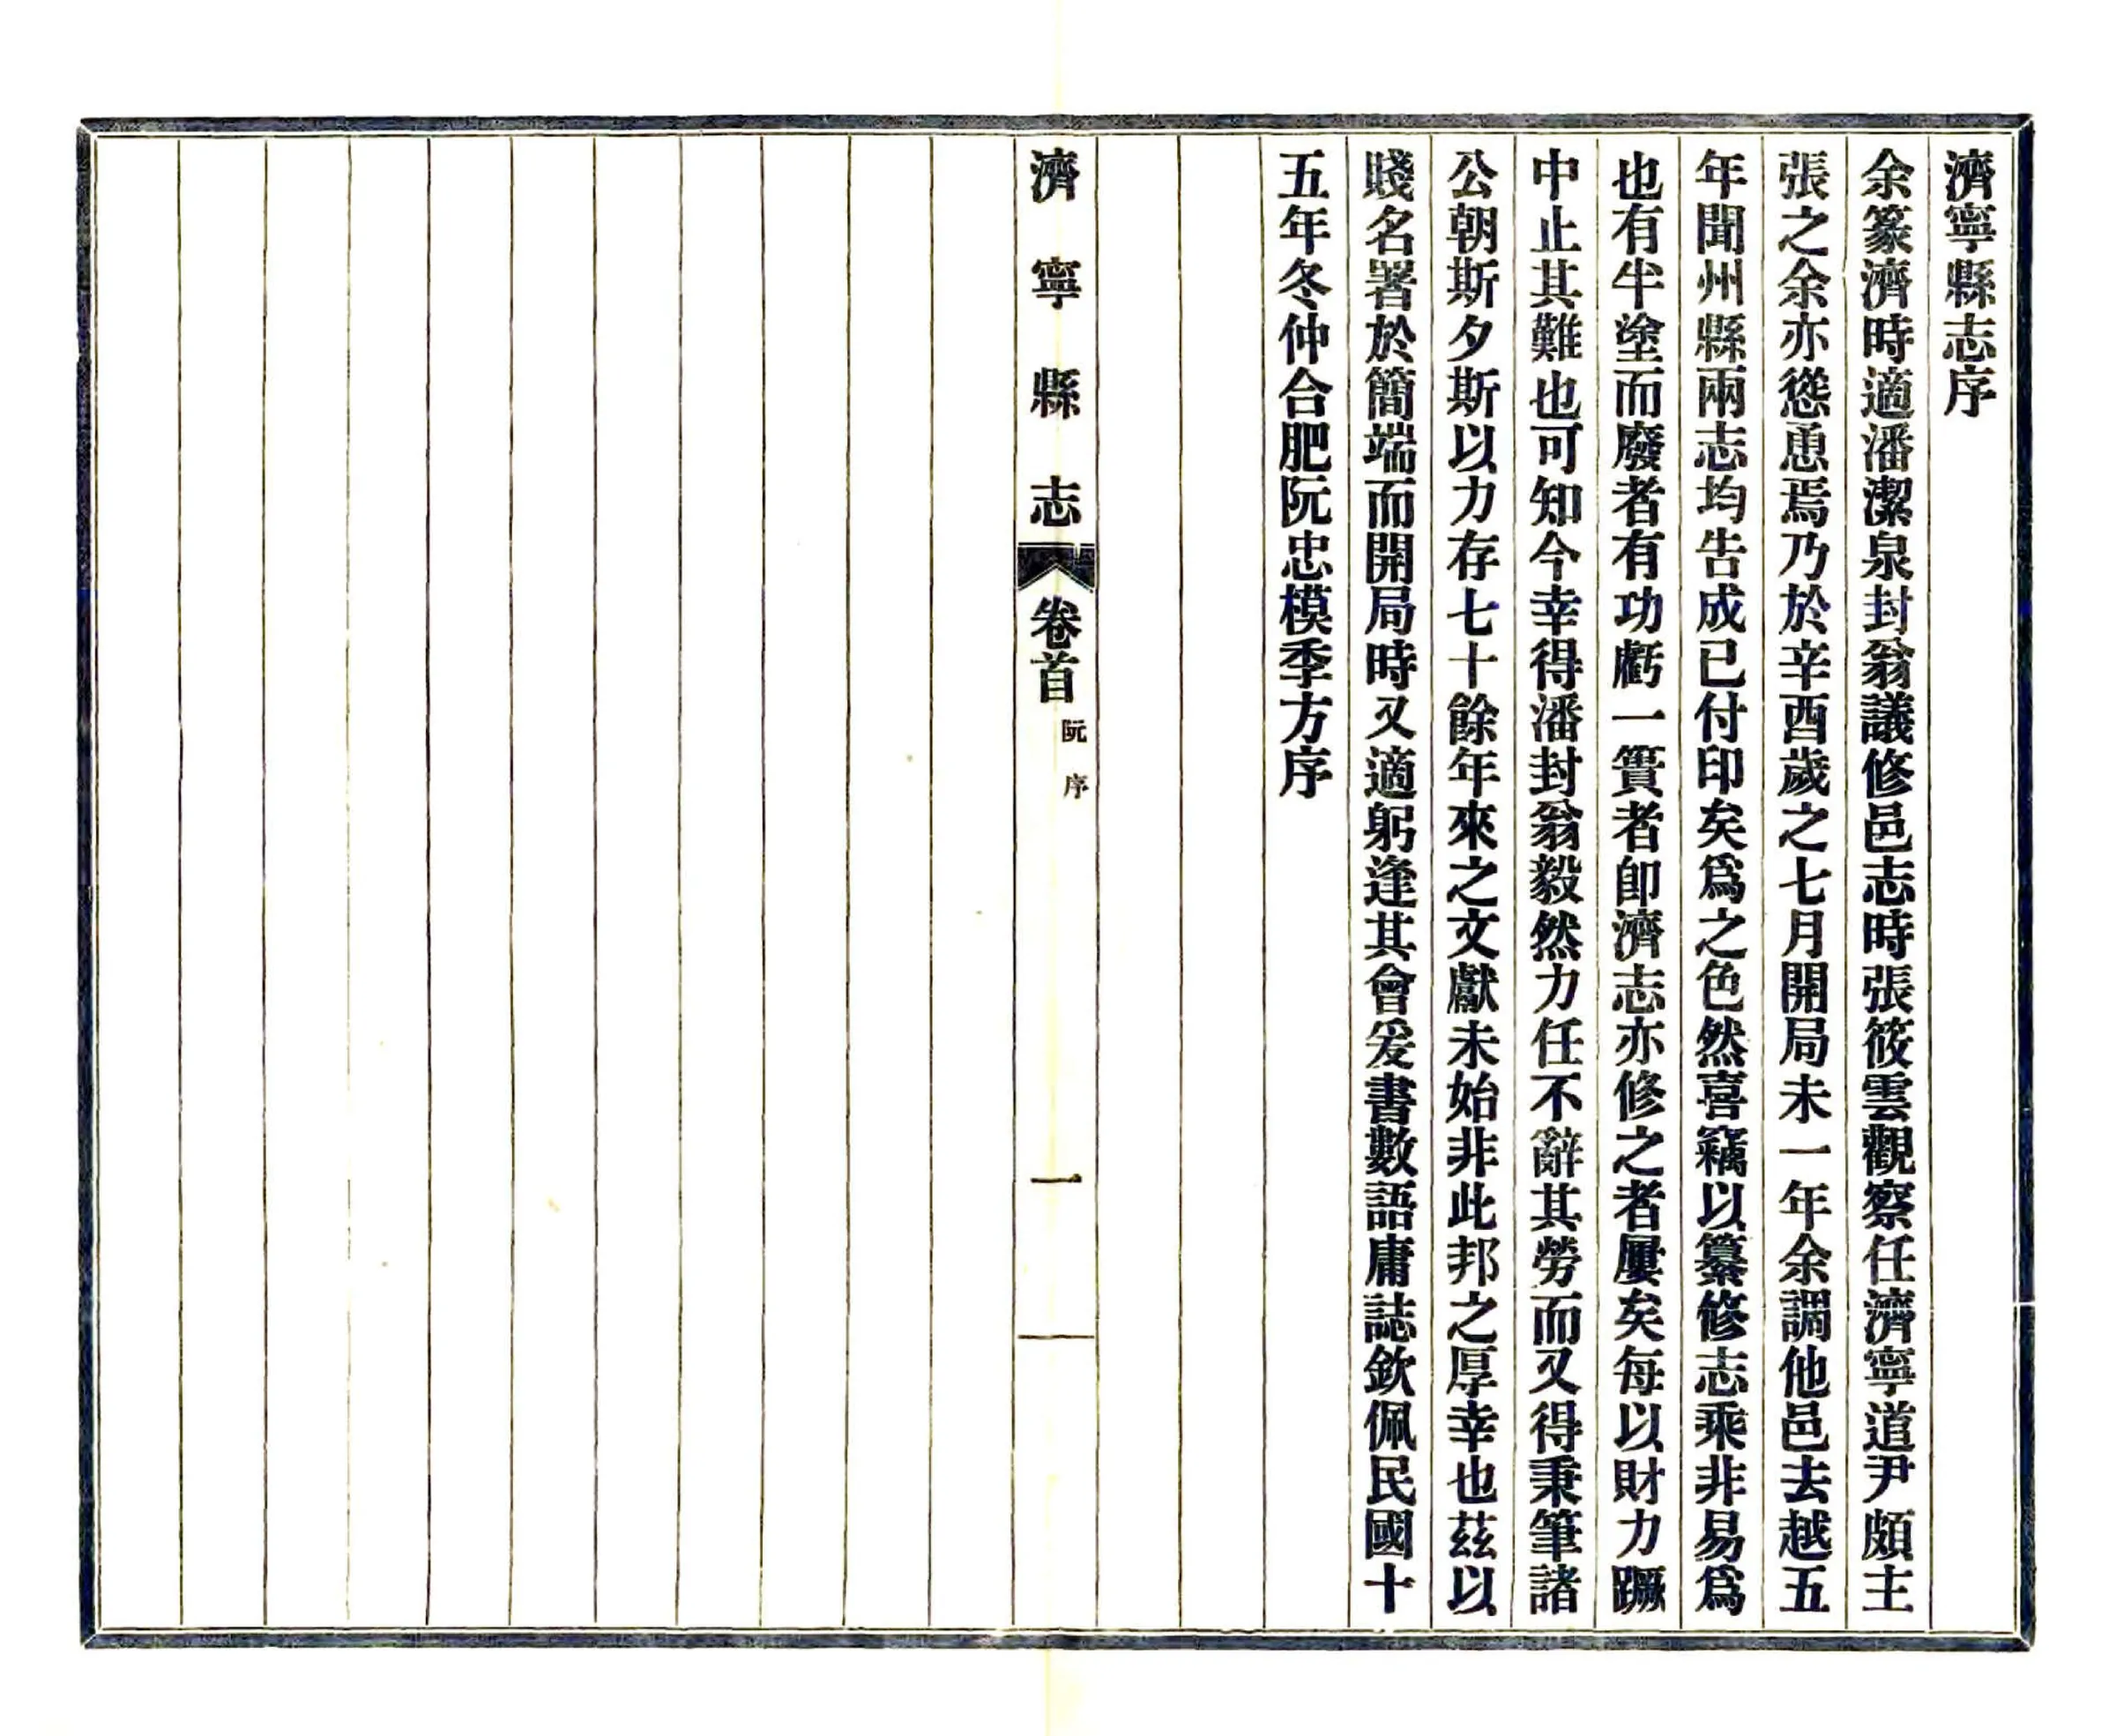 濟寧縣志序
余篆濟時適潘潔泉封翁議修邑志時張筱雲觀察任濟寧道尹頗主
張之余亦慫恿焉乃於辛酉歲之七月開局未一年余調他邑去越五
年聞州縣兩志均告成已付印矣爲之色然喜竊以纂修志乘非易爲
也有半塗而廢者有功虧一簣者卽濟志亦修之者屢矣每以財力蹶
中止其難也可知今幸得潘封翁毅然力任不辭其勞而又得秉筆諸
公朝斯夕斯以力存七十餘年來之文獻未始非此邦之厚幸也茲以
賤名署於簡端而開局時又適躬逢其會爰書數語庸誌欽佩民國十
五年冬仲合肥阮忠模季方序
濟寧縣志 卷首 阮序 一